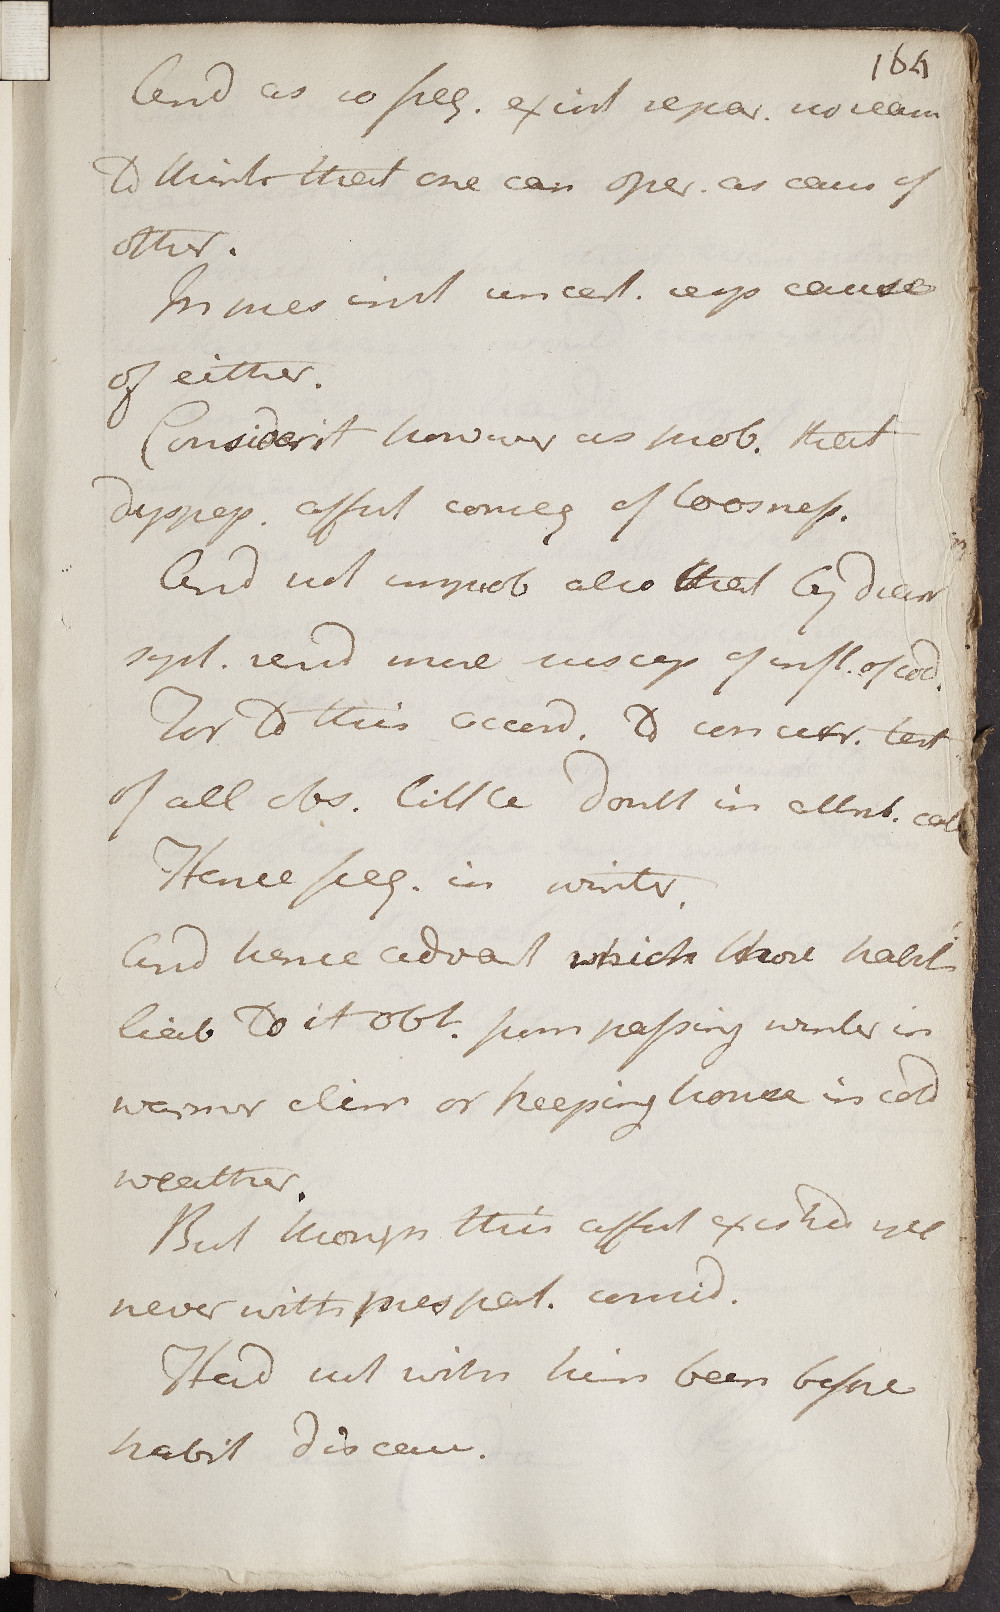 164
And as so freq. exist separ. no reason
To think that one can oper. as caus of
other.
In pres inst uncert. resp cause
of either.
Consider it however as prob. that
dyspep. affect conseq of loosness.
And not improb also that by diar
syst. rend more suscep of infl. of cold.
For To this accord. To concurr. test
of all obs. little doubt in attrib. cat
Hence freq. in winter.
And hence advant which those habit
liab To it obt. from passing winter in
warmer clim or keeping house in cold
weather.
But though this affect existed yet
never with pres pat. consid.
Had not with him been before
habit diseas.